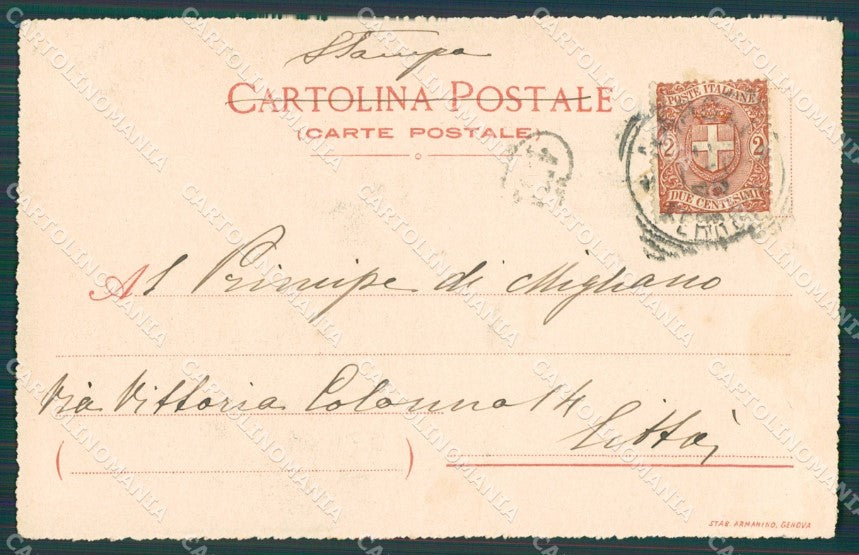 Stampa
CARTOLINA POSTALE
(CARTE POSTALE)
POSTE ITALIANE
2 2
DUE CENTESIMI
Al Principe di Migliano
Via Vittoria Colonna 14
Città,
STAB. ARMANINO, GENOVA
CARTOLINOMANIA